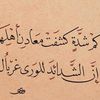 كم شدّةٍ كشفت معادن أهلها
إنّ الشّدائد للورى غربال